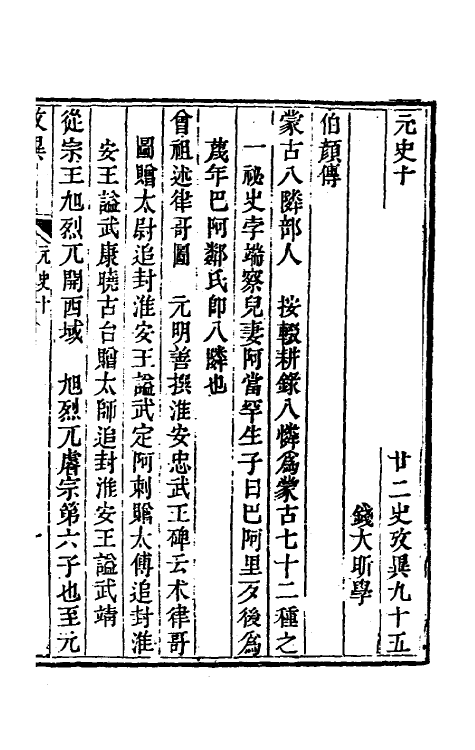 元史十　廿二史攷異九十五
錢大昕學
伯顏傳
蒙古八隣部人　按輟耕錄八憐爲蒙古七十二種之
一祕史孛端察兒妻阿當罕生子曰巴阿里歹後爲
蔑年巴阿鄰氏卽八隣也
曾祖述律哥圖　元明善撰淮安忠武王碑云朮律哥
圖贈太尉追封淮安王謚武定阿剌贈太傅追封淮
安王謚武康曉古台贈太師追封淮安王謚武靖
從宗王旭烈兀開西域　旭烈兀睿宗第六子也至元
攷異　元史十